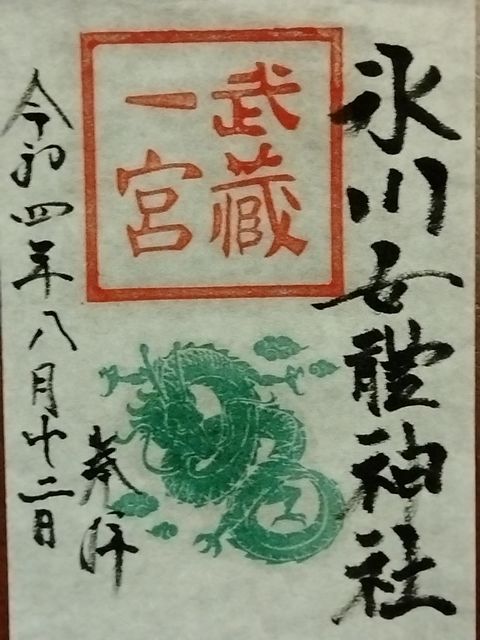 氷川女體神社
武蔵
一宮
奉拝
令和四年八月十二日